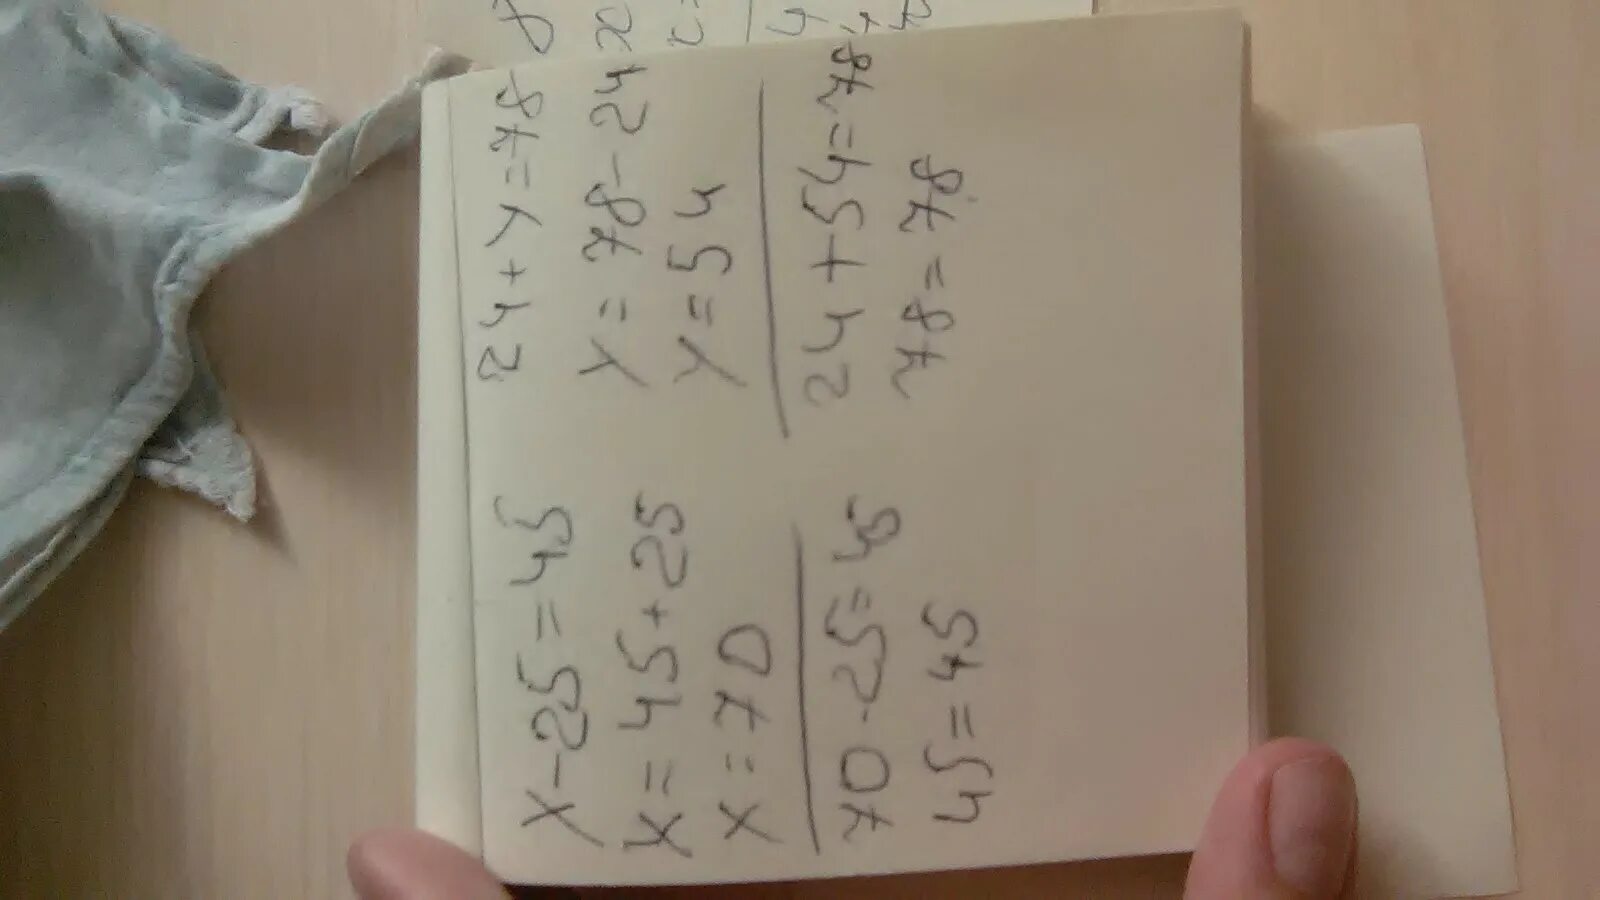 x-25=45
x=45+25
x=70
70-25=45
45=45
24+y=78
y=78-24
y=54
24+54=78
78=78